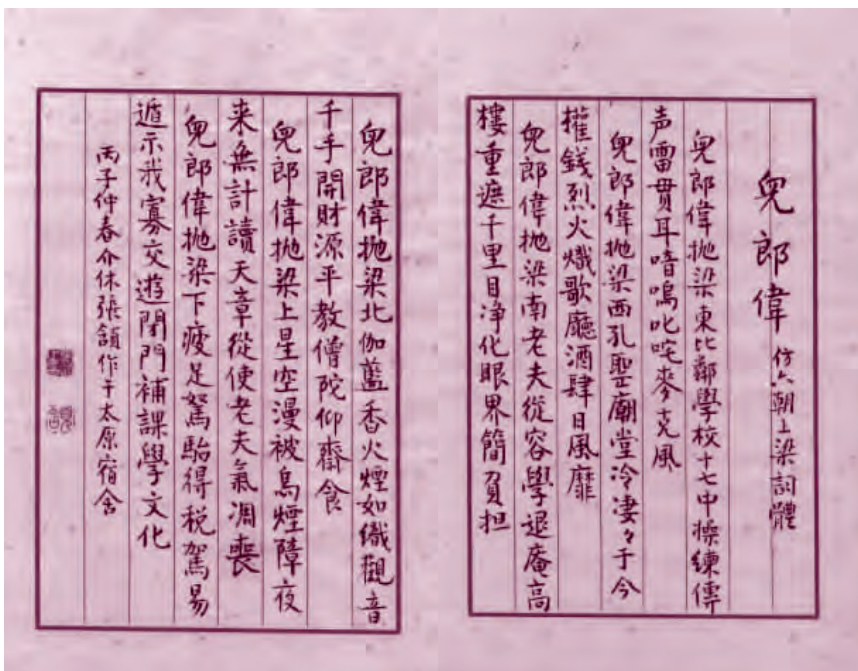 兒郎偉 仿六朝上梁詞體
兒郎偉抛梁東比鄰學校十七中操練傳
声雷貫耳喑嗚叱咤麥克風
兒郎偉抛梁西孔聖廟堂冷凄々于今
權錢烈火熾歌廳酒肆日風靡
兒郎偉抛梁南老夫從容學退庵高
樓重遮千里目净化眼界簡負担
兒郎偉抛梁北伽藍香火煙如織觀音
千手開財源平教僧陀仰齋食
兒郎偉抛梁上星空漫被烏煙障夜
来無計讀天章從使老夫氣凋喪
兒郎偉抛梁下疲足駑駘得税駕易
遁示我寡交遊閉門補課學文化
丙子仲春介休張頷作于太原宿舍